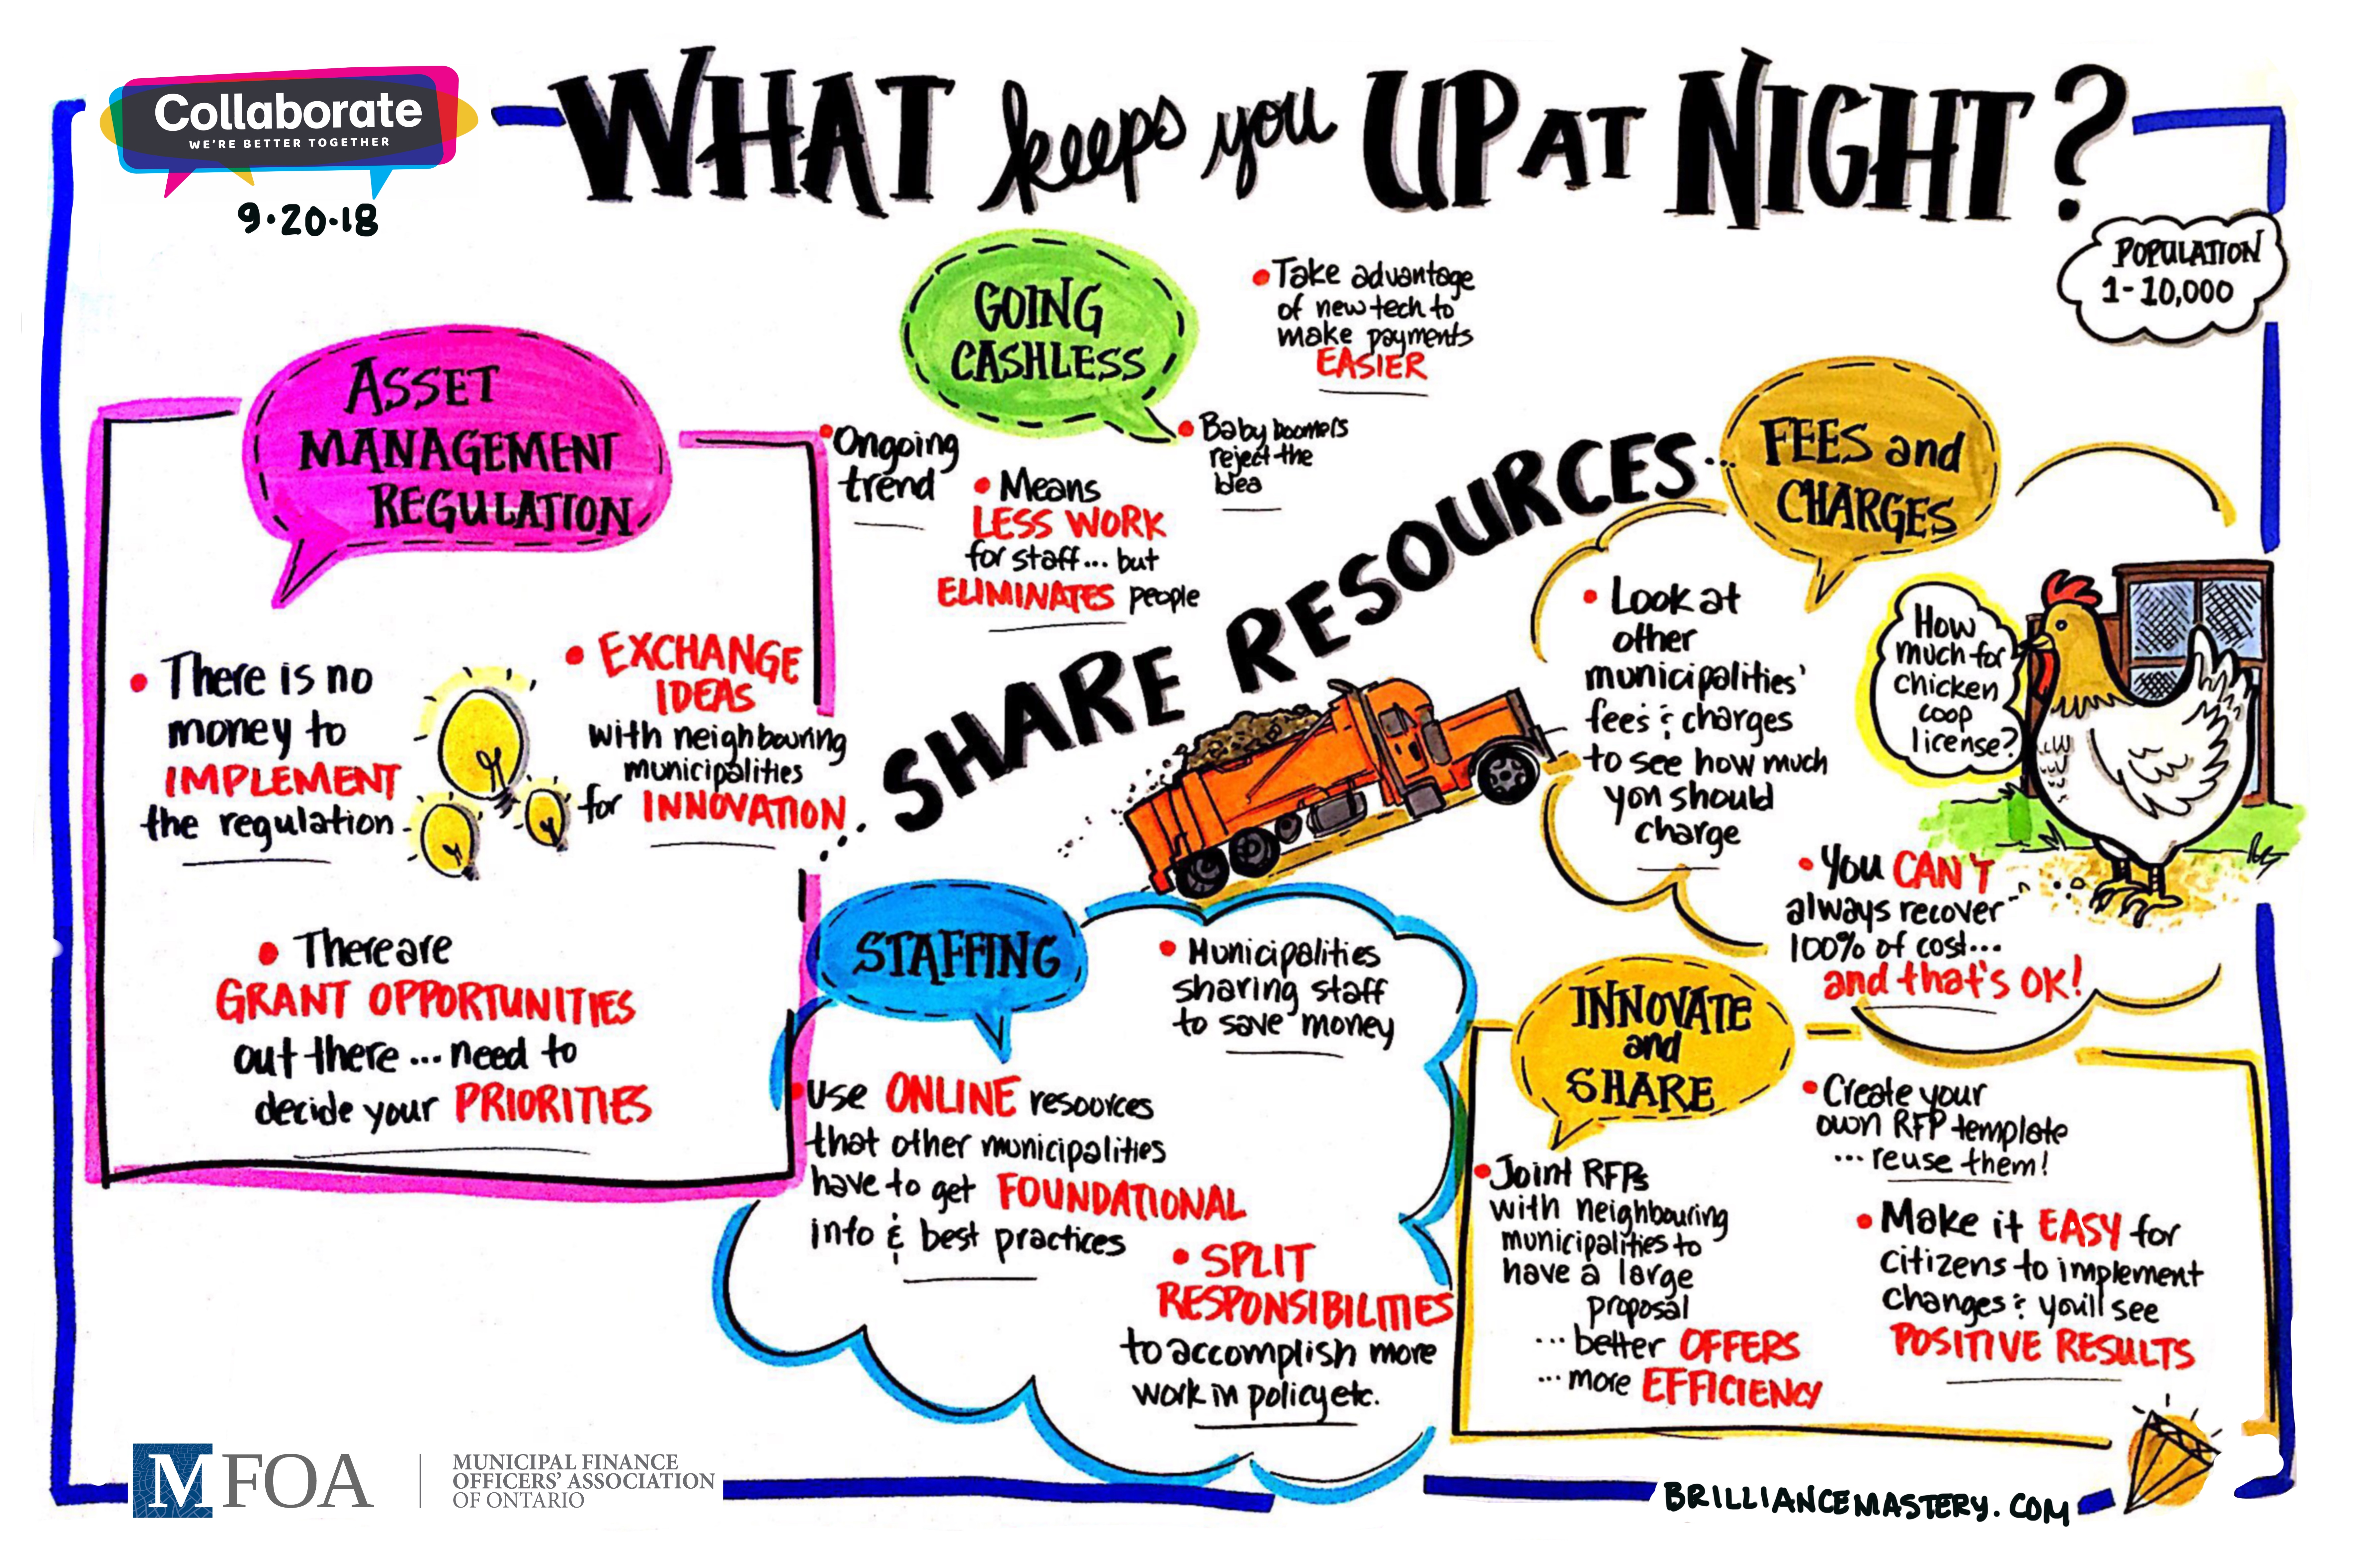 Collaborate
WE'RE BETTER TOGETHER
9·20·18
WHAT keeps you UP AT NIGHT?
POPULATION
1-10,000
GOING
CASHLESS
• Take advantage
of new tech to
make payments
EASIER
• Baby boomers
reject the
idea
• Ongoing
trend
• Means
LESS WORK
for staff... but
ELIMINATES people
ASSET
MANAGEMENT
REGULATION
• There is no
money to
IMPLEMENT
the regulation
• EXCHANGE
IDEAS
with neighbouring
municipalities
for INNOVATION
• There are
GRANT OPPORTUNITIES
out there... need to
decide your PRIORITIES
... SHARE RESOURCES...
FEES and
CHARGES
• Look at
other
municipalities'
fees & charges
to see how much
you should
charge
How
much for
chicken
coop
license?
• You CAN'T
always recover
100% of cost...
and that's OK!
STAFFING
• Municipalities
sharing staff
to save money
• Use ONLINE resources
that other municipalities
have to get FOUNDATIONAL
info & best practices
• SPLIT
RESPONSIBILITIES
to accomplish more
work in policy etc.
INNOVATE
and
SHARE
• Joint RFPs
with neighbouring
municipalities to
have a large
proposal
... better OFFERS
... more EFFICIENCY
• Create your
own RFP template
... reuse them!
• Make it EASY for
citizens to implement
changes & you'll see
POSITIVE RESULTS
MFOA
MUNICIPAL FINANCE
OFFICERS' ASSOCIATION
OF ONTARIO
BRILLIANCEMASTERY.COM